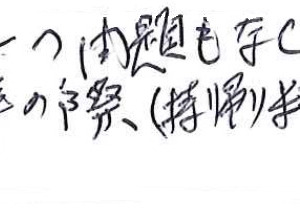 つ問題もなく
の際、(持帰り